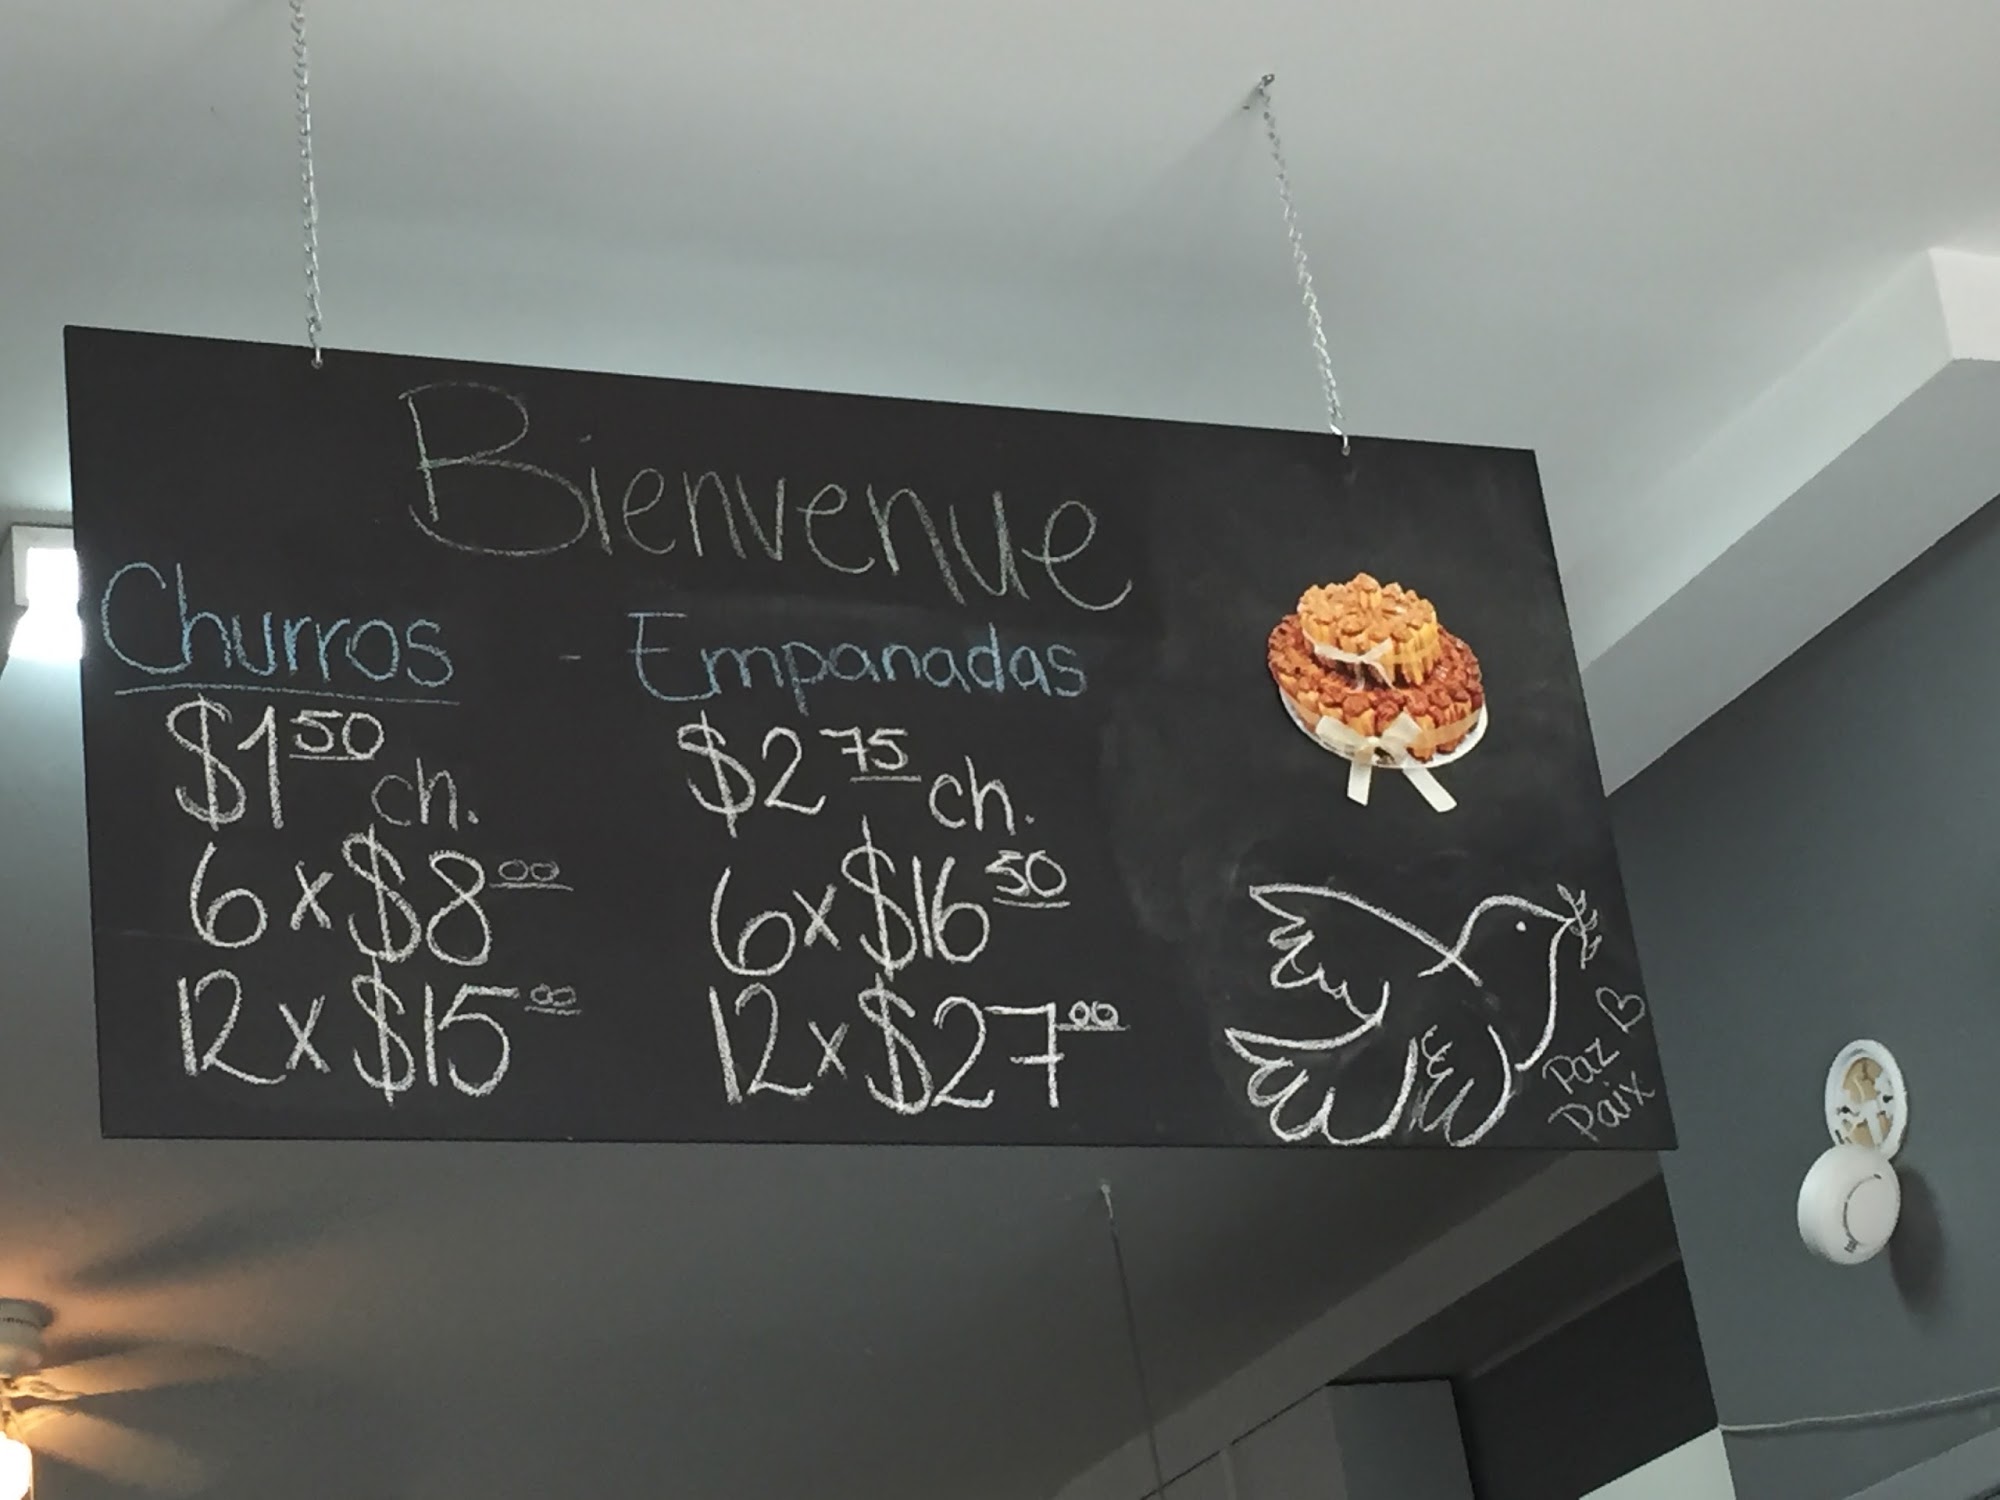 Bienvenue
Churros - Empanadas
$1.50 ch.
6 x $8.00
12 x $15.00
$2.75 ch.
6 x $16.50
12 x $27.00
Paz
Paix